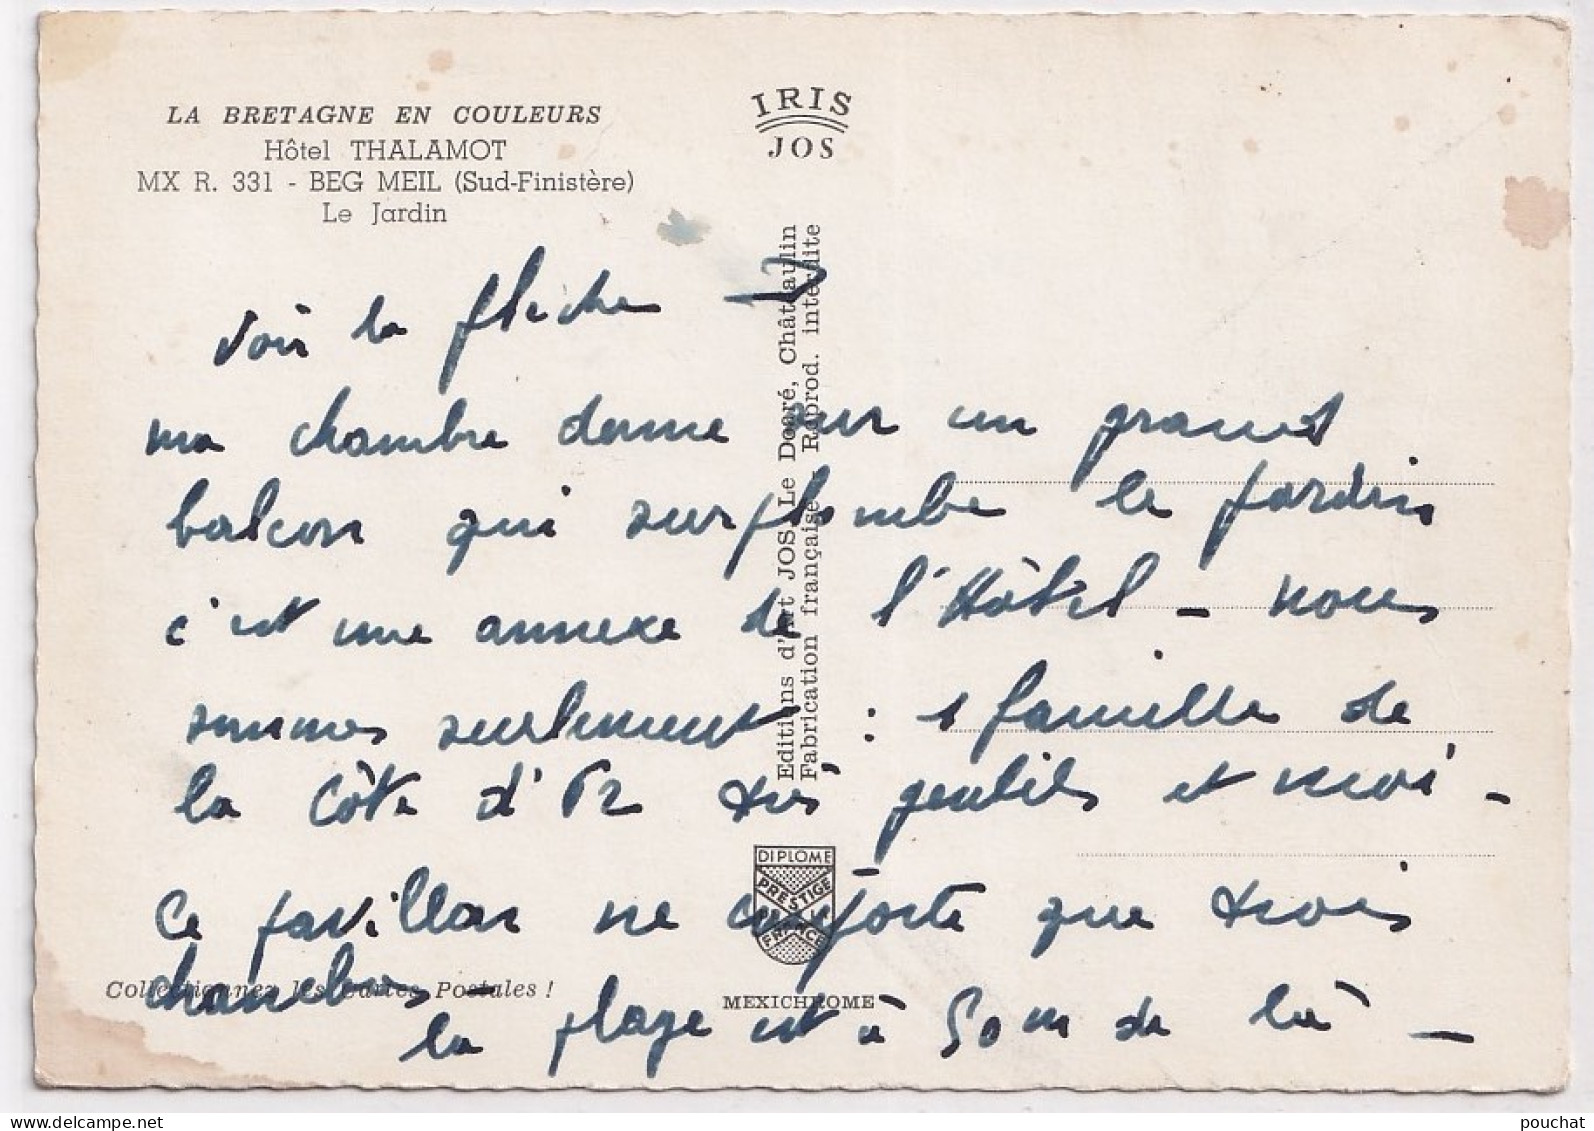 LA BRETAGNE EN COULEURS
Hôtel THALAMOT
MX R. 331 - BEG MEIL (Sud-Finistère)
Le Jardin
IRIS
JOS
Editions d'Art JOS Le Doaré, Châteaulin
Fabrication française - Reprod. interdite
Voir la flèche →
ma chambre donne sur un grand
balcon qui surplombe le jardin
c'est une annexe de l'Hôtel - nous
sommes seulement : 1 famille de
la Côte d'Or très gentils et moi -
Ce pavillon ne comporte que trois
chambres -
la plage est à 50 m de là -
DIPLOME
PRESTIGE
DE LA
FRANCE
Collectionnez les Cartes Postales !
MEXICHROME
pouchat